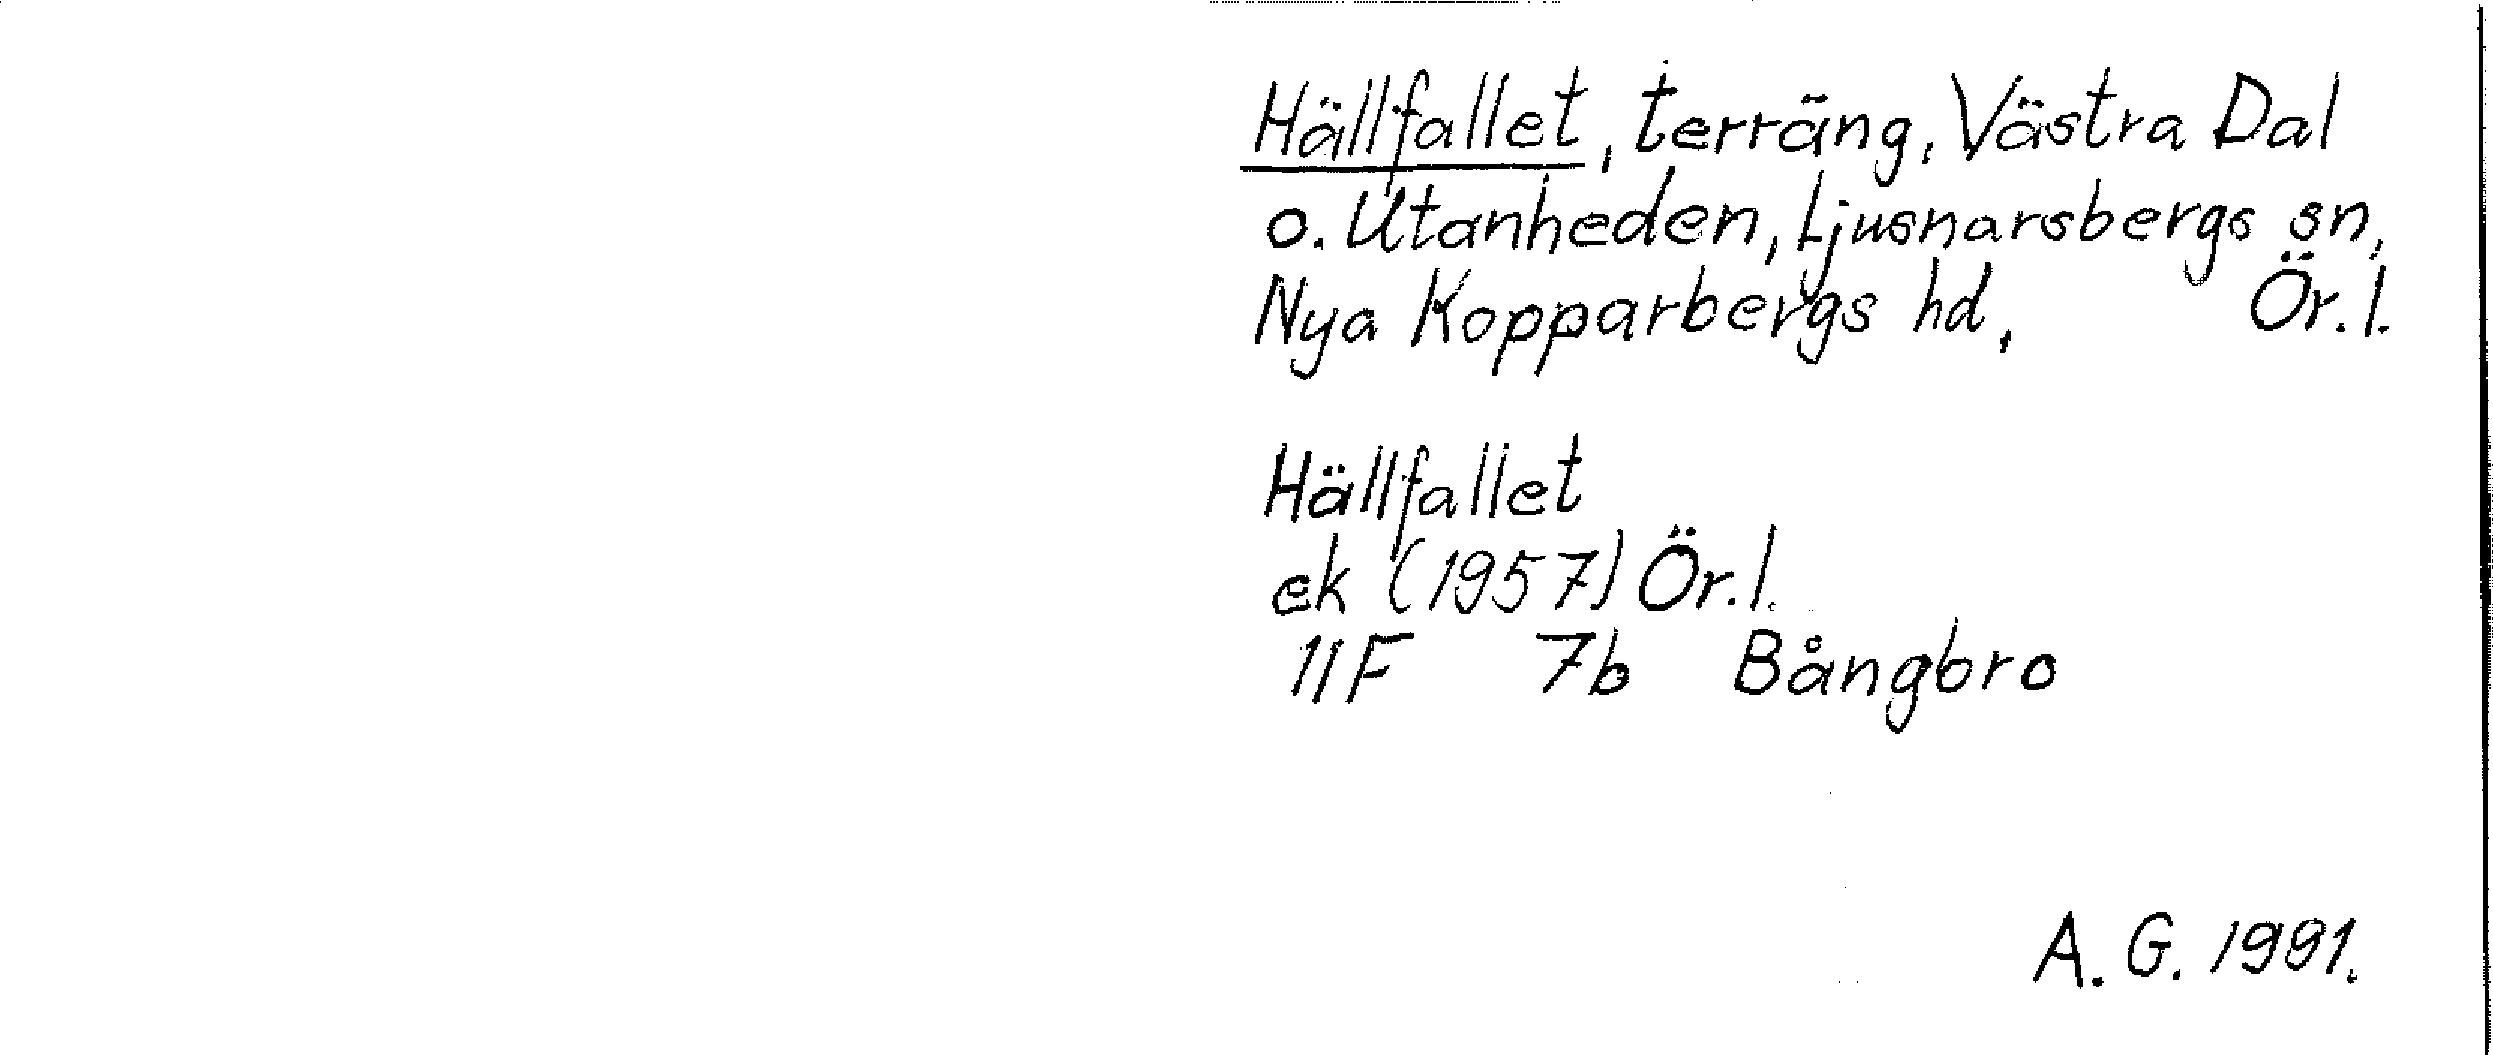 Hällfallet, terräng, Västra Dal
o. Utanheden, Ljusnarsbergs sn,
Nya Kopparbergs hd, Ör. l.
Hällfallet
ek (1957) Ör. l.
11F 7b Bångbro
A. G. 1991.